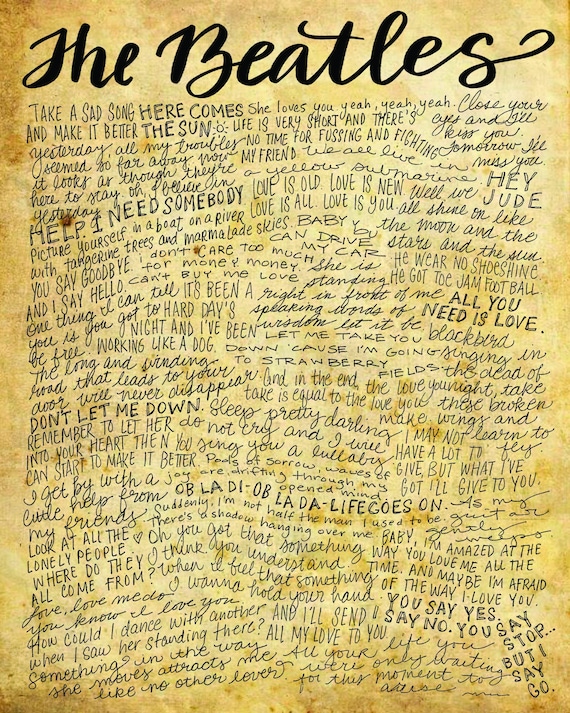 The Beatles
TAKE A SAD SONG HERE COMES She loves you yeah, yeah, yeah. Close your
AND MAKE IT BETTER THE SUN LIFE IS VERY SHORT AND THERE'S eyes and I'll
yesterday all my troubles NO TIME FOR FUSSING AND FIGHTING kiss you
seemed so far away now MY FRIEND. we all live in tomorrow I'll
it looks as though they're a yellow submarine miss you
here to stay oh, I believe in LOVE IS OLD. LOVE IS NEW. Well we HEY
yesterday LOVE IS ALL. LOVE IS YOU. all shine on like JUDE
HELP I NEED SOMEBODY BABY YOU the moon and the
Picture yourself in a boat on a RIVER CAN DRIVE stars and the sun.
with tangerine trees and marmalade skies. MY CAR HE WEAR NO SHOESHINE
YOU SAY GOODBYE. I DON'T CARE TOO MUCH She is HE GOT TOE JAM FOOTBALL
AND I SAY HELLO. for money & money can't BUY ME LOVE standing
one thing I can tell IT'S BEEN A right in front of me ALL YOU
you is you got to HARD DAY'S speaking words of NEED IS LOVE.
be free NIGHT AND I'VE BEEN wisdom let it be blackbird
WORKING LIKE A DOG. LET ME TAKE YOU singing in
The long and winding DOWN 'CAUSE I'M GOING the dead of
road that leads to your TO STRAWBERRY FIELDS
door will never disappear. And in the end, the love you night, take
take is equal to the love you these broken
DON'T LET ME DOWN. Sleep pretty darling make. wings and
REMEMBER TO LET HER do not cry and I will I MAY NOT learn to
INTO YOUR HEART THEN YOU sing you a lullaby HAVE A LOT TO fly
CAN START TO MAKE IT BETTER. Pools of sorrow, waves of GIVE BUT WHAT I'VE
I get by with a joy are drifting through my GOT I'LL GIVE TO YOU.
little help from opened mind
my friends OB LA DI-OB LA DA-LIFE GOES ON. As my
Suddenly, I'm not half the man I used to be. guitar
LOOK AT ALL THE there's a shadow hanging over me. BABY, I'M AMAZED AT THE gently weeps
LONELY PEOPLE. Oh you got that something WAY YOU LOVE ME ALL THE
WHERE DO THEY I think you understand TIME. AND MAYBE I'M AFRAID
ALL COME FROM? When I feel that something OF THE WAY I LOVE YOU.
Love, love me do I wanna hold your hand. YOU SAY YES.
you know I love you AND I'LL SEND I SAY NO. YOU SAY
How could I dance with another ALL MY LOVE TO YOU STOP...
when I saw her standing there? All your life you BUT I
something in the way were only waiting SAY
she moves attracts me for this moment to GO.
like no other lover arise